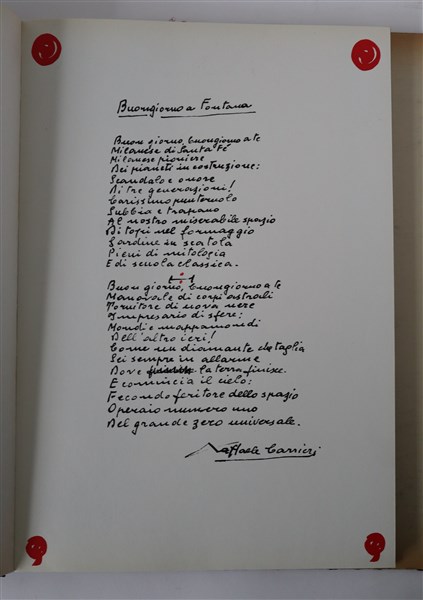 Buongiorno a Fontana
Buon giorno, buongiorno a te
Milanese di Santa Fé
Milanese pioniere
Dei pianeti in costruzione:
Scandalo e onore
Di tre generazioni!
Carissimo punteruolo
Subbia e trapano
Al nostro miserabile spazio
Di topi nel formaggio
Sardine in scatola
Pieni di mitologia
E di scuola classica.
Buon giorno, buongiorno a te
Manovale di corpi astrali
Tornitore di uova nere
Impresario di sfere:
Mondi e mappamondi
Dell'altro ieri!
Come un diamante che taglia
Sei sempre in allarme
Dove la terra finisce.
E comincia il cielo:
Fecondo feritore dello spazio
Operaio numero uno
Del grande zero universale.
Raffaele Carrieri